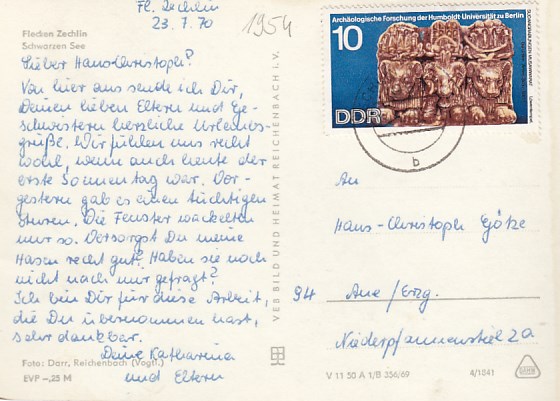 Fl. Zechlin
23.7.70
1954
Flecken Zechlin
Schwarzen See
Lieber Hans-Christoph!
Von hier aus sende ich Dir,
Deinen lieben Eltern und Ge-
schwistern herzliche Urlaubs-
grüße. Wir fühlen uns recht
wohl, wenn auch heute der
erste Sonnentag war. Vor-
gestern gab es einen tüchtigen
Sturm. Die Fenster wackelten
nur so. Versorgst Du meine
Hasen recht gut? Haben sie noch
nicht nach mir gefragt?
Ich bin Dir für diese Arbeit,
die Du übernommen hast,
sehr dankbar.
Deine Katharina
und Eltern
Foto: Darr, Reichenbach (Vogtl.)
EVP -,25 M
VEB BILD UND HEIMAT REICHENBACH i. V.
Archäologische Forschung der Humboldt-Universität zu Berlin
10
DDR
b
An
Hans-Christoph Götze
94 Aue/Erzg.
Niederpfannenstiel 2a
V 11 50 A 1/B 356/69
4/1041